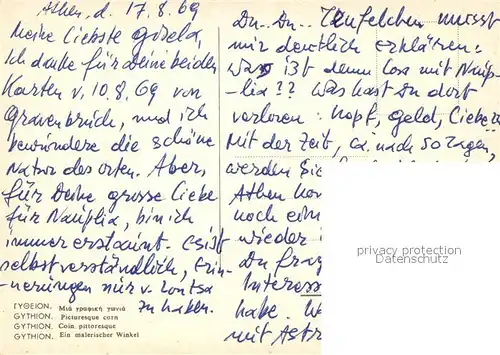 Athen, d. 17.8.69
Meine Liebste Gisela,
Ich danke für Deine beiden
Karten v. 10.8.69 von
Gravenbruch, und ich
bewundere die schöne
Natur des orten. Aber,
für Deine grosse Liebe
für Nauplia, bin ich
immer erstaunt. es ist
selbstverständlich, Erin-
nerungen nur v. Lontsa
zu haben.
ΓΥΘΕΙΟΝ. Μιὰ γραφικὴ γωνιά
GYTHION. Picturesque corn
GYTHION. Coin pittoresque
GYTHION. Ein malerischer Winkel
Du.. Du.. Teufelchen musst
mir deutlich erklären:
was ist denn los mit Naup-
-lia?? Was hast Du dort
verloren: Kopf, Geld, Liebe
Mit der Zeit, ca. nach 50 Tagen,
werden Sie
Athen
noch ein
wieder
Du frag
Interess
habe. W
mit Astr
privacy protection
Datenschutz